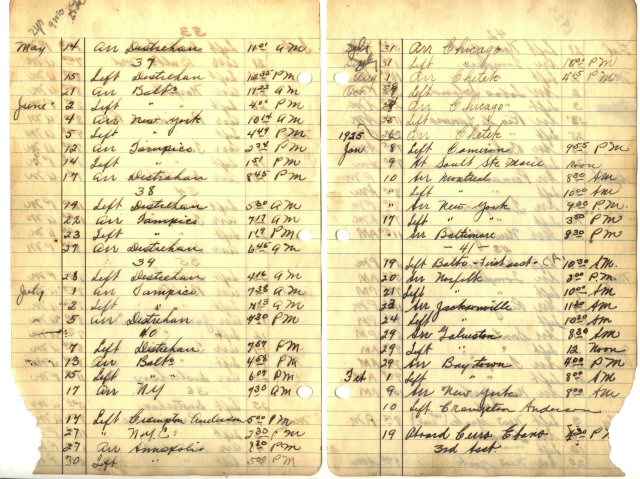 May 14 Arr Destrehan 11 01 AM
37
15 Left Destrehan 12 35 PM
21 Arr Balto 11 23 AM
June 2 Left " 4 00 PM
4 Arr New York 10 14 AM
5 Left " 4 49 PM
12 Arr Tampico 2 24 PM
14 Left " 1 51 PM
17 Arr Destrehan 8 45 PM
38
19 Left Destrehan 5 30 AM
22 Arr Tampico 7 13 AM
23 Left " 1 19 PM
27 Arr Destrehan 6 45 AM
39
28 Left Destrehan 4 16 AM
July 1 Arr Tampico 7 38 AM
2 Left " AM
5 Arr Destrehan 4 30 PM
40
7 Left Destrehan PM
13 Arr Balto PM
15 Left " PM
17 Arr NY 7 30 AM
17 Left Crampton Anderson 5 00 PM
27 N.Y.C. 2 30 PM
27 Arr Annapolis PM
30 Left " 5 00 PM
July 31 Arr Chicago
31 Left " PM
Aug 1 Arr Chetek 4 45 PM
Oct Left "
Arr Chicago
Left "
1925 Arr Chetek
Jan 8 Left Cameron 9 55 PM
9 At Sault Ste Marie Noon
10 Arr Montreal 8 30 AM
" Left " 10 00 AM
" Arr New York 9 00 P.M.
17 Left " " 3 50 PM
" Arr Baltimore 8 30 PM
- 41 -
19 Left Balto - First asst - 10 30 AM.
20 Arr Norfolk 2 00 PM.
21 Left " 10 00 AM
22 Arr Jacksonville 11 30 AM
24 Left " 10 30 AM
29 Arr Galveston 8 30 AM
29 Left " 12 Noon
29 Arr Baytown 4 00 PM
Feb 1 Left " 8 00 AM
9 Arr New York 8 00 AM
10 Left Crampton Anderson
19 Aboard Cerro Ebano 4 30 PM
3rd Asst